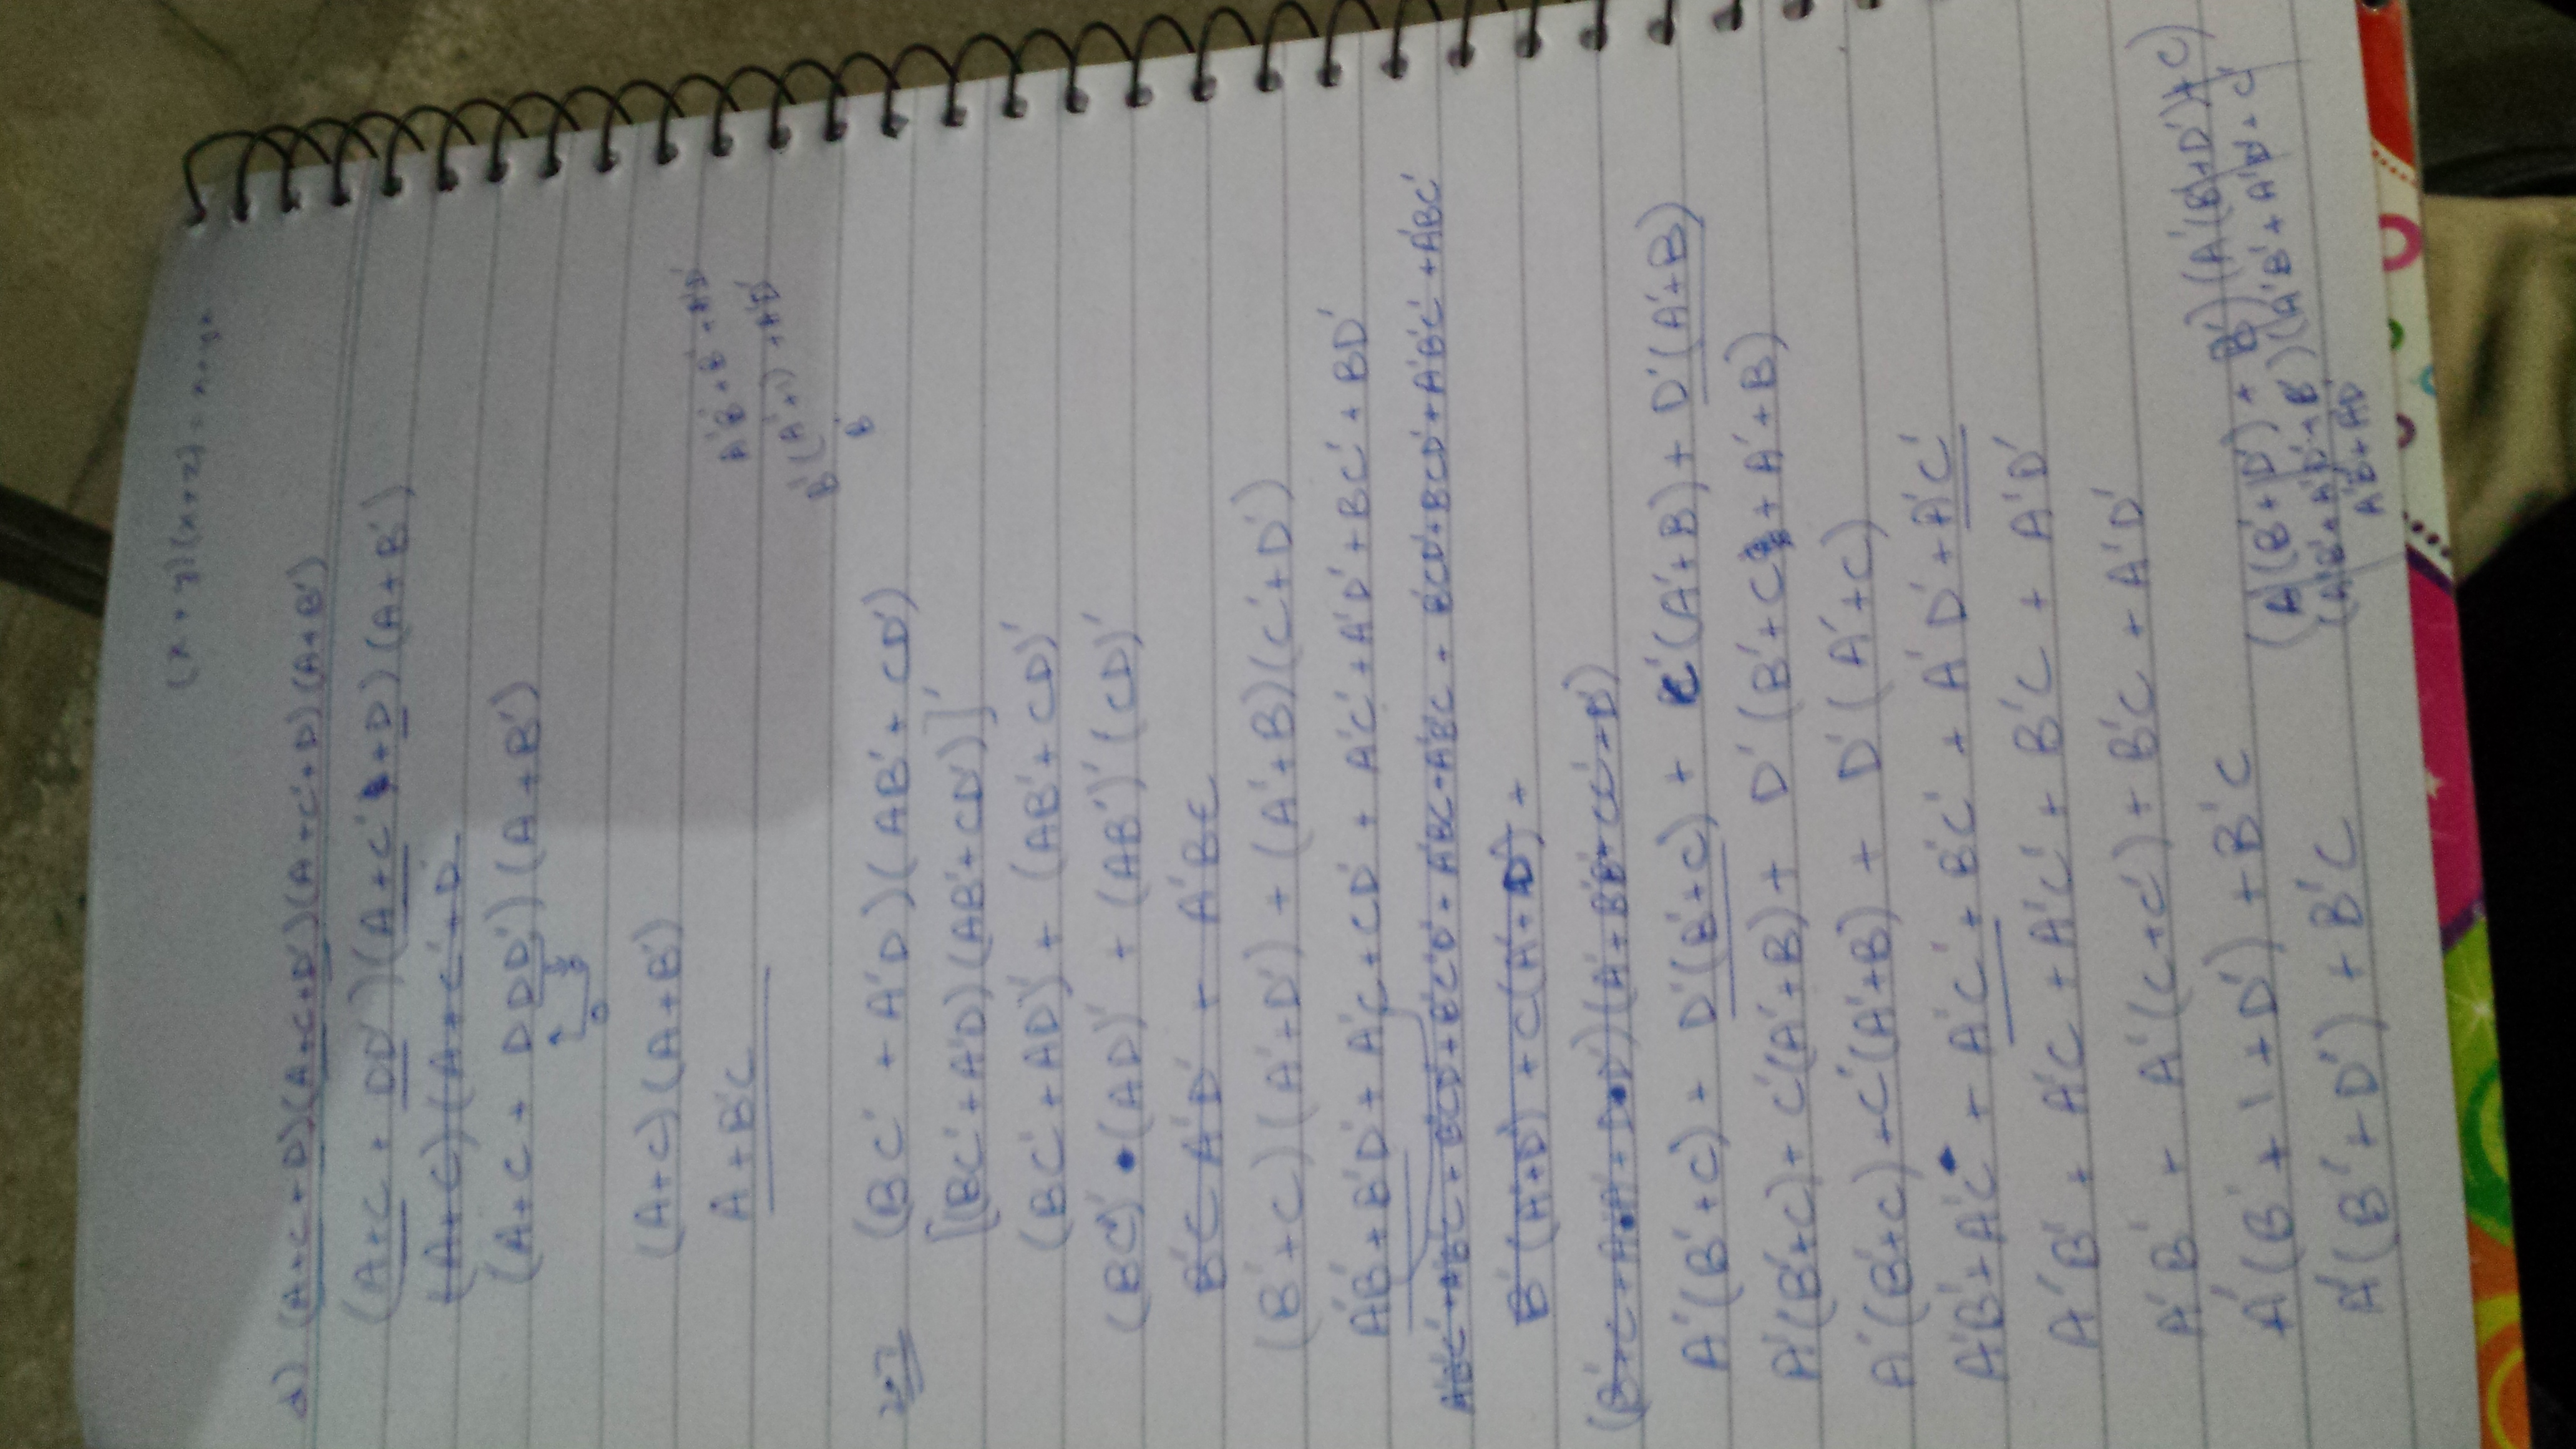 (x + y)(x+z) = x+yz
d) (A+C+D)(A+C+D')(A+C'+D)(A+B')
(A+C + DD')(A+C'+D)(A+B')
(A+C)(A+C'+D
(A+C + DDD')(A+B')
0
(A+C)(A+B')
A+B'C
A'B'+B'+A'D'
B'(A'+1)+A'D'
B'
2.7 (BC' + A'D)(AB' + CD')
[(BC'+A'D)(AB'+CD')]'
(BC'+AD)' + (AB'+CD)'
(BC')'•(AD)' + (AB')'(CD)'
B'C A'D' + A'BC
(B'+C)(A'+D') + (A'+B)(C'+D')
A'B' + B'D' + A'C + CD' + A'C' + A'D' + BC' + BD'
A'B'C' + A'B'C + B'CD' + B'C'D' + A'BC + A'B'C + B'CD' + BCD' + A'B'C' + A'BC'
B'(A'+D') + C(A'+D') +
(B'+C+A•A'+D•D')(A'+BB'+CC'+D')
A'(B'+C) + D'(B'+C) + C'(A'+B) + D'(A'+B)
A'(B'+C) + C'(A'+B) + D'(B'+C + A'+B)
A'(B'+C) + C'(A'+B) + D'(A'+C)
A'B' + A'C + A'C' + B'C' + A'D' + A'C'
A'B' + A'C + A'C' + B'C + A'D'
A'B' + A'(C+C') + B'C + A'D'
A'(B' + 1 + D') + B'C
A'(B'+D') + B'C
(A'(B'+D') + B')(A'(B'+D')+C)
(A'B'+A'D'+B')(A'B'+A'D'+C
A'B'+A'D'